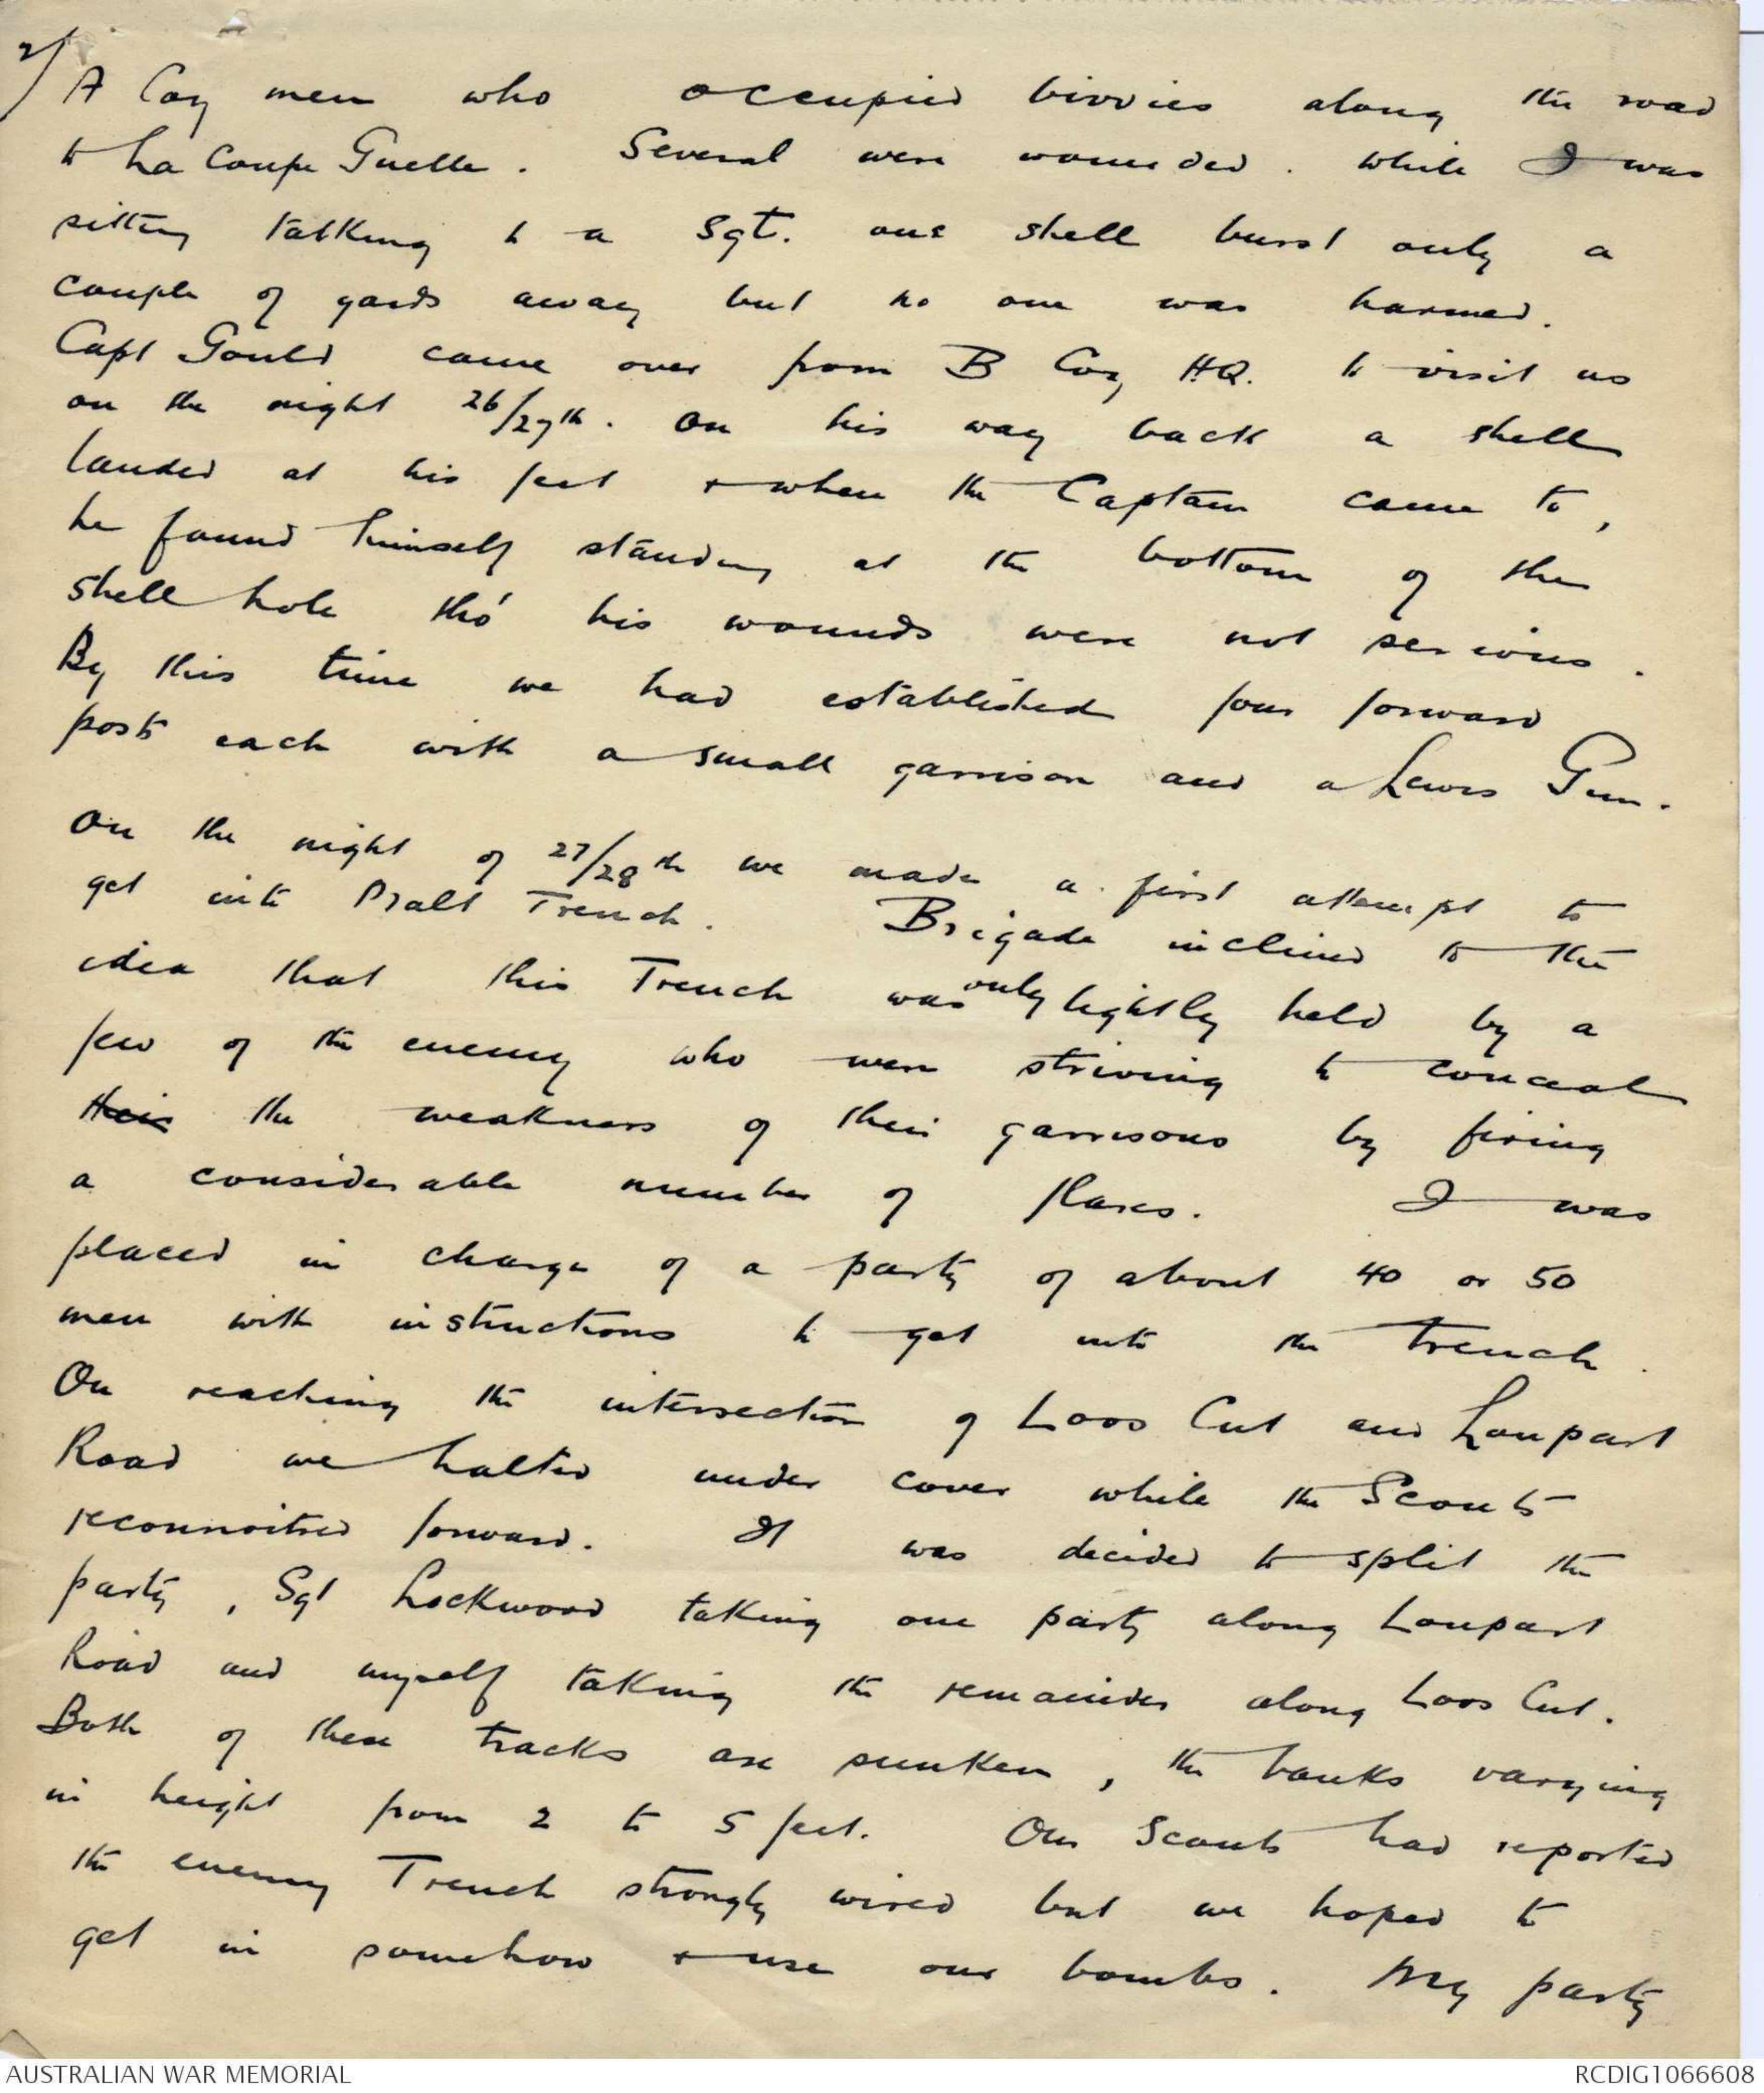 2/
A Coy men who occupied bivvies along the road
to La Coupe Guelle. Several were wounded. While I was
sitting talking to a Sgt. one shell burst only a
couple of yards away but no one was harmed.
Capt Gould came over from B Coy HQ. to visit us
on the night 26/27th. On his way back a shell
landed at his feet + when the Captain came to,
he found himself standing at the bottom of the
shell hole tho' his wounds were not serious.
By this time we had established four forward
posts each with a small garrison and a Lewis Gun.
On the night of 27/28th we made a first attempt to
get into Malt Trench. Brigade inclined to the
idea that this Trench was only lightly held by a
few of the enemy who were striving to conceal
their the weakness of their garrisons by firing
a considerable number of flares. I was
placed in charge of a party of about 40 or 50
men with instructions to get into the trench.
On reaching the intersection of Loos Cut and Loupart
Road we halted under cover while the Scouts
reconnoitred forward. It was decided to split the
party, Sgt Lockwood taking one party along Loupart
Road and myself taking the remainder along Loos Cut.
Both of these tracks are sunken, the banks varying
in height from 2 to 5 feet. Our Scouts had reported
the enemy Trench strongly wired but we hoped to
get in somehow + use our bombs. My party
AUSTRALIAN WAR MEMORIAL
RCDIG1066608